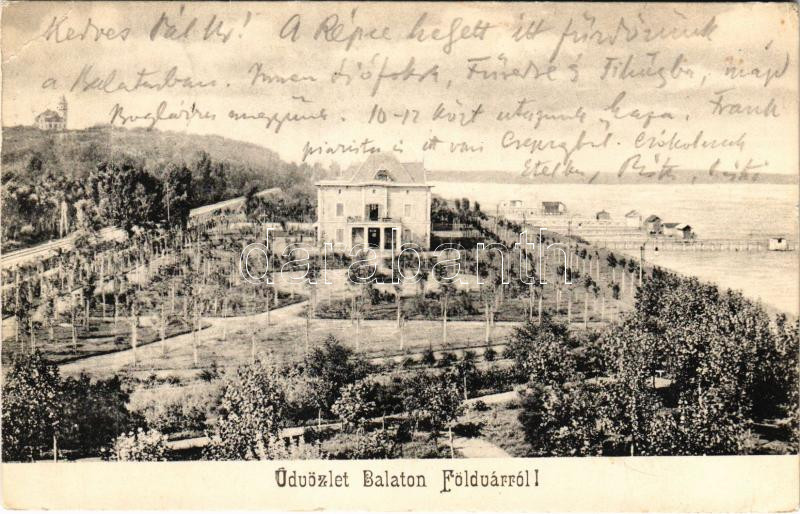 Kedves Pál Úr! A Répce helyett itt fürdőzünk
a Balatonban. Innen Siófokra, Füredre és Tihanyba, majd
Boglárra megyünk. 10-12 közt utazunk haza. Frank
piarista is itt van Csepregből. Csókolunk
Etelka,
dalapanth
Üdvözlet Balaton Földvárról!